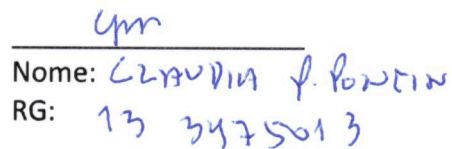 Nome: CLAUDIA P. PONTIN
RG: 13 3475013